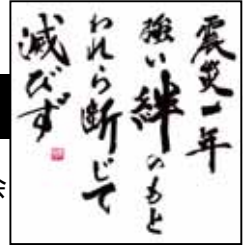 震災一年
強い絆のもと
われら断じて
滅びず